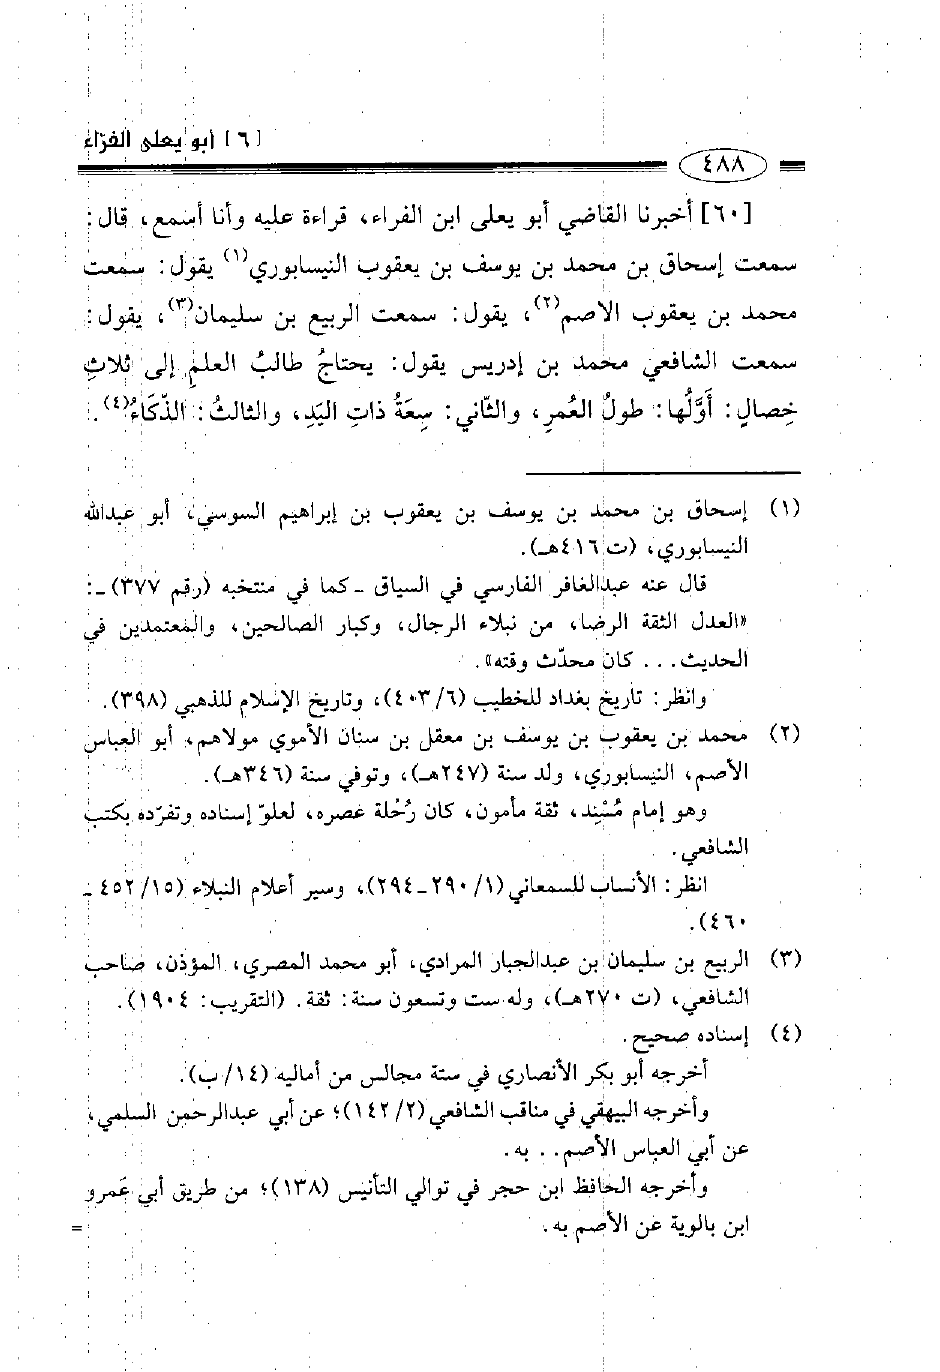 [٦] أبو يعلى الفرّاء
٤٨٨
[٦٠] أخبرنا القاضي أبو يعلى ابن الفراء، قراءة عليه وأنا أسمع، قال:
سمعت إسحاق بن محمد بن يوسف بن يعقوب النيسابوري(١) يقول: سمعت
محمد بن يعقوب الأصم(٢)، يقول: سمعت الربيع بن سليمان(٣)، يقول:
سمعت الشافعي محمد بن إدريس يقول: يحتاجُ طالبُ العلمِ إلى ثلاثِ
خِصالٍ: أَوَّلُها: طولُ العُمرِ، والثّاني: سِعَةُ ذاتِ اليَدِ، والثالثُ: الذّكَاءُ(٤).
(١) إسحاق بن محمد بن يوسف بن يعقوب بن إبراهيم السوسي، أبو عبدالله
النيسابوري، (ت٤١٦هـ).
قال عنه عبدالغافر الفارسي في السياق ـ كما في منتخبه (رقم ٣٧٧) ـ:
«العدل الثقة الرضا، من نبلاء الرجال، وكبار الصالحين، والمعتمدين في
الحديث... كان محدّث وقته».
وانظر: تاريخ بغداد للخطيب (٦/ ٤٠٣)، وتاريخ الإسلام للذهبي (٣٩٨).
(٢) محمد بن يعقوب بن يوسف بن معقل بن سنان الأموي مولاهم، أبو العباس
الأصم، النيسابوري، ولد سنة (٢٤٧هـ)، وتوفي سنة (٣٤٦هـ).
وهو إمام مُسْنِد، ثقة مأمون، كان رُحْلة عصره، لعلوّ إسناده وتفرّده بكتب
الشافعي.
انظر: الأنساب للسمعاني (١/ ٢٩٠ـ ٢٩٤)، وسير أعلام النبلاء (١٥/ ٤٥٢ ـ
٤٦٠).
(٣) الربيع بن سليمان بن عبدالجبار المرادي، أبو محمد المصري، المؤذن، صاحب
الشافعي، (ت ٢٧٠هـ)، وله ست وتسعون سنة: ثقة. (التقريب: ١٩٠٤).
(٤) إسناده صحيح.
أخرجه أبو بكر الأنصاري في ستة مجالس من أماليه (١٤/ ب).
وأخرجه البيهقي في مناقب الشافعي (٢/ ١٤٢)؛ عن أبي عبدالرحمن السلمي،
عن أبي العباس الأصم.. به.
وأخرجه الحافظ ابن حجر في توالي التأنيس (١٣٨)؛ من طريق أبي عَمرو
ابن بالوية عن الأصم به. =